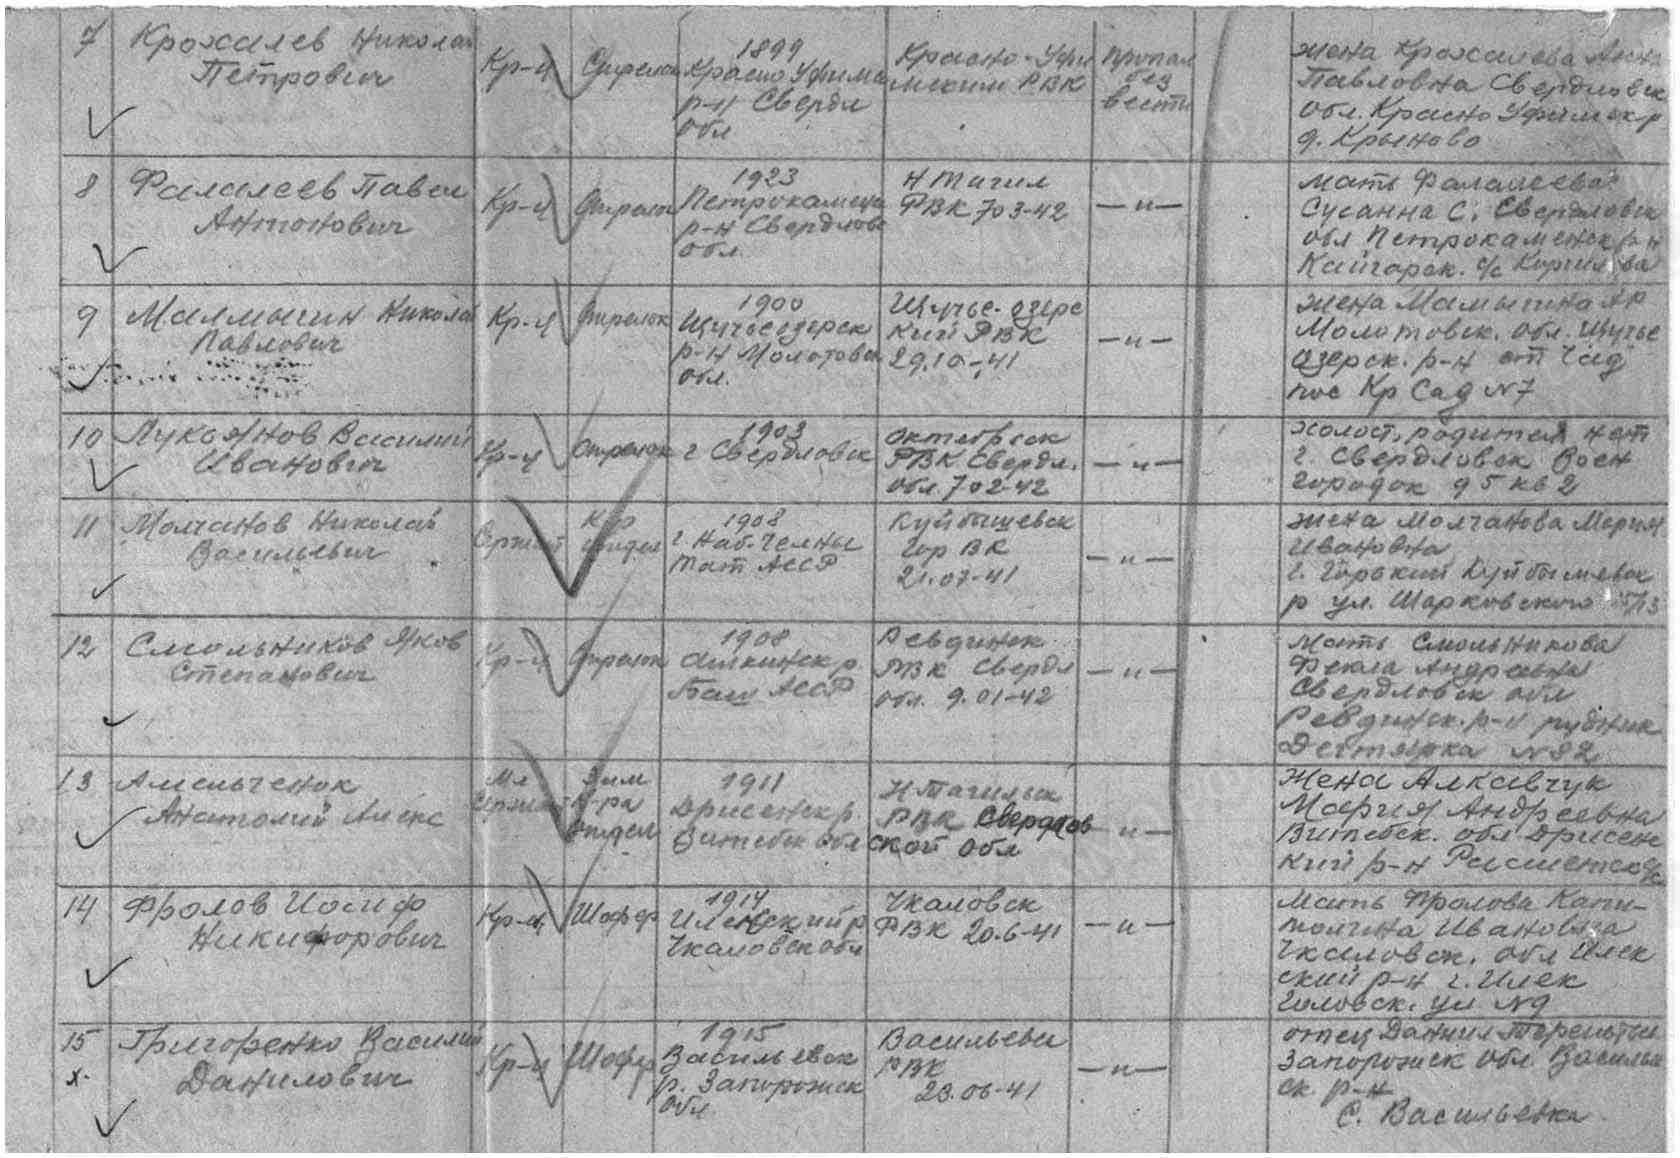 7 Крохалев Николай
Петрович
Кр-ц Стрелок
1899
Красно Уфимс
р-н Свердл
обл
Красно-Уфи
мским РВК
пропал
без
вести
жена Крохалева Анна
Павловна Свердловск
обл. Красно Уфимск р
д. Крыново
8 Фалалеев Павел
Антонович
Кр-ц Стрелок
1923
Петрокаменс
р-н Свердловс
обл.
Н Тагил
ФВК 703-42
— " —
мать Фалалеева
Сусанна С. Свердловск
обл Петрокаменск р-н
Кайгарск. с/с
9 Малмыгин Николай
Павлович
Кр-ц Стрелок
1900
Щучьеозерск
р-н Молотовск
обл.
Щучье-озерс
кий РВК
29.10-41
— " —
жена
Молотовск. обл. Щучье
Озерск. р-н ст Чад
пос Кр Сад N7
10 Лукоянов Василий
Иванович
Кр-ц Стрелок
1903
г Свердловск
октябрск
РВК Свердл.
обл. 702-42
— " —
холост, родител нет
г Свердловск Воен
городок 95 кв 2
11 Молчанов Николай
Васильевич
Сржант
К-р
отдел
1908
г. Наб. Челны
Тат АССР
Куйбышевск
Гор ВК
21.07-41
— " —
жена Молчанова Мария
Ивановна
г. Горький Куйбышевск
р ул. Шарковского
12 Смольников Яков
Степанович
Кр-ц Стрелок
1908
Аскинск р
Баш АССР
Ревдинск
РВК Свердл
обл. 9.01-42
— " —
Мать Смольникова
Фекла Андреевна
Свердловск обл
Ревдинск. р-н рудник
Дегтярка N82
13 Амельченок
Анатолий Алекс
Мл
Сржант
Зам
К-ра
отдел
1911
Дрисенск р
Витебск обл
Н Тагильск
РВК Свердлов
ской обл
— " —
Жена Алкавчук
Мария Андреевна
Витебск. обл Дрисен
кий р-н
14 Фролов Иосиф
Никифорович
Кр-ц Шофер
1914
Илекский р
Чкаловск обл
Чкаловск
РВК 20.6-41
— " —
Мать Фролова Капи-
толина Ивановна
Чкаловск. обл Илек
ский р-н г. Илек
ул N9
15 Григоренко Василий
х. Данилович
Кр-ц Шофер
1915
Васильевск
р. Запорожск
обл
Васильевс
РВК
23.06-41
— " —
отец Данил Терентьи
Запорожск обл. Василье
ск р-н
с. Васильевка